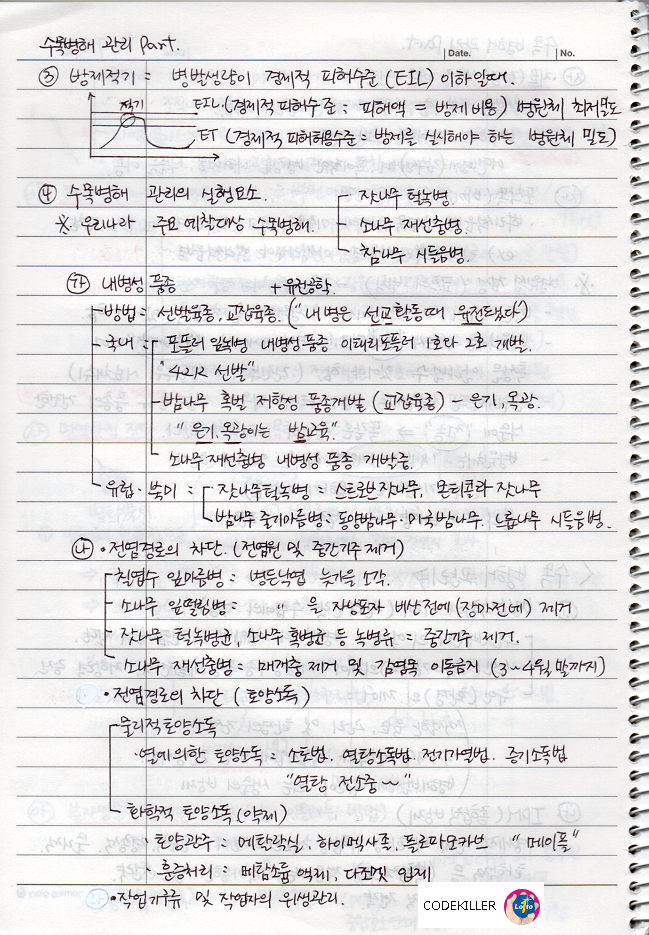 수목병해 관리 Part.
Date. No.
③ 방제적기 = 병발생량이 경제적 피해수준 (EIL) 이하일때.
적기 EIL. (경제적피해수준 : 피해액 = 방제비용) 병원체 최저밀도
ET (경제적피해허용수준 = 방제를 실시해야 하는 병원체 밀도)
④ 수목병해 관리의 실행요소.
잣나무 털녹병.
※ 우리나라 주요 예찰대상 수목병해. 소나무 재선충병.
참나무 시들음병.
㉮ 내병성 품종 + 유전공학
방법 = 선발육종, 교잡육종. ("내병은 선교활동때 유전되었다")
국내 = 포플러 잎녹병 내병성품종 이태리포플러 1호와 2호 개발.
"4212 선발"
밤나무 혹벌 저항성 품종개발 (교잡육종) - 은기, 옥광.
"은기, 옥광이는 밤교육"
소나무 재선충병 내병성 품종 개발중.
유럽·북미 = 잣나무털녹병 = 스트로브잣나무, 몬티콜라 잣나무
밤나무 줄기마름병 = 동양밤나무·미국밤나무. 느릅나무 시들음병.
㉯ · 전염경로의 차단. (전염원 및 중간기주 제거)
침엽수 잎마름병 = 병든낙엽 늦가을 소각.
소나무 잎떨림병 = " 을 자낭포자 비산전에 (장마전에) 제거
잣나무 털녹병균, 소나무 혹병균 등 녹병류 = 중간기주 제거.
소나무 재선충병 = 매개충 제거 및 감염목 이동금지 (3~4월 말까지)
· 전염경로의 차단 (토양소독)
물리적 토양소독
· 열에의한 토양소독 = 소토법. 열탕소독법. 전기가열법. 증기소독법
"열탕 전소중~"
화학적 토양소독 (약제)
· 토양관주 = 에탄락실, 하이멕사졸, 플로파모카브 "메이플"
· 훈증처리 = 메탐소듐 액제, 다조멧 입제
· 작업기구류 및 작업자의 위생관리.
CODEKILLER
Lotto